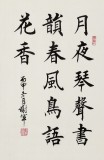 月夜琴聲書
韻春風鳥語
花香
丙申冬月